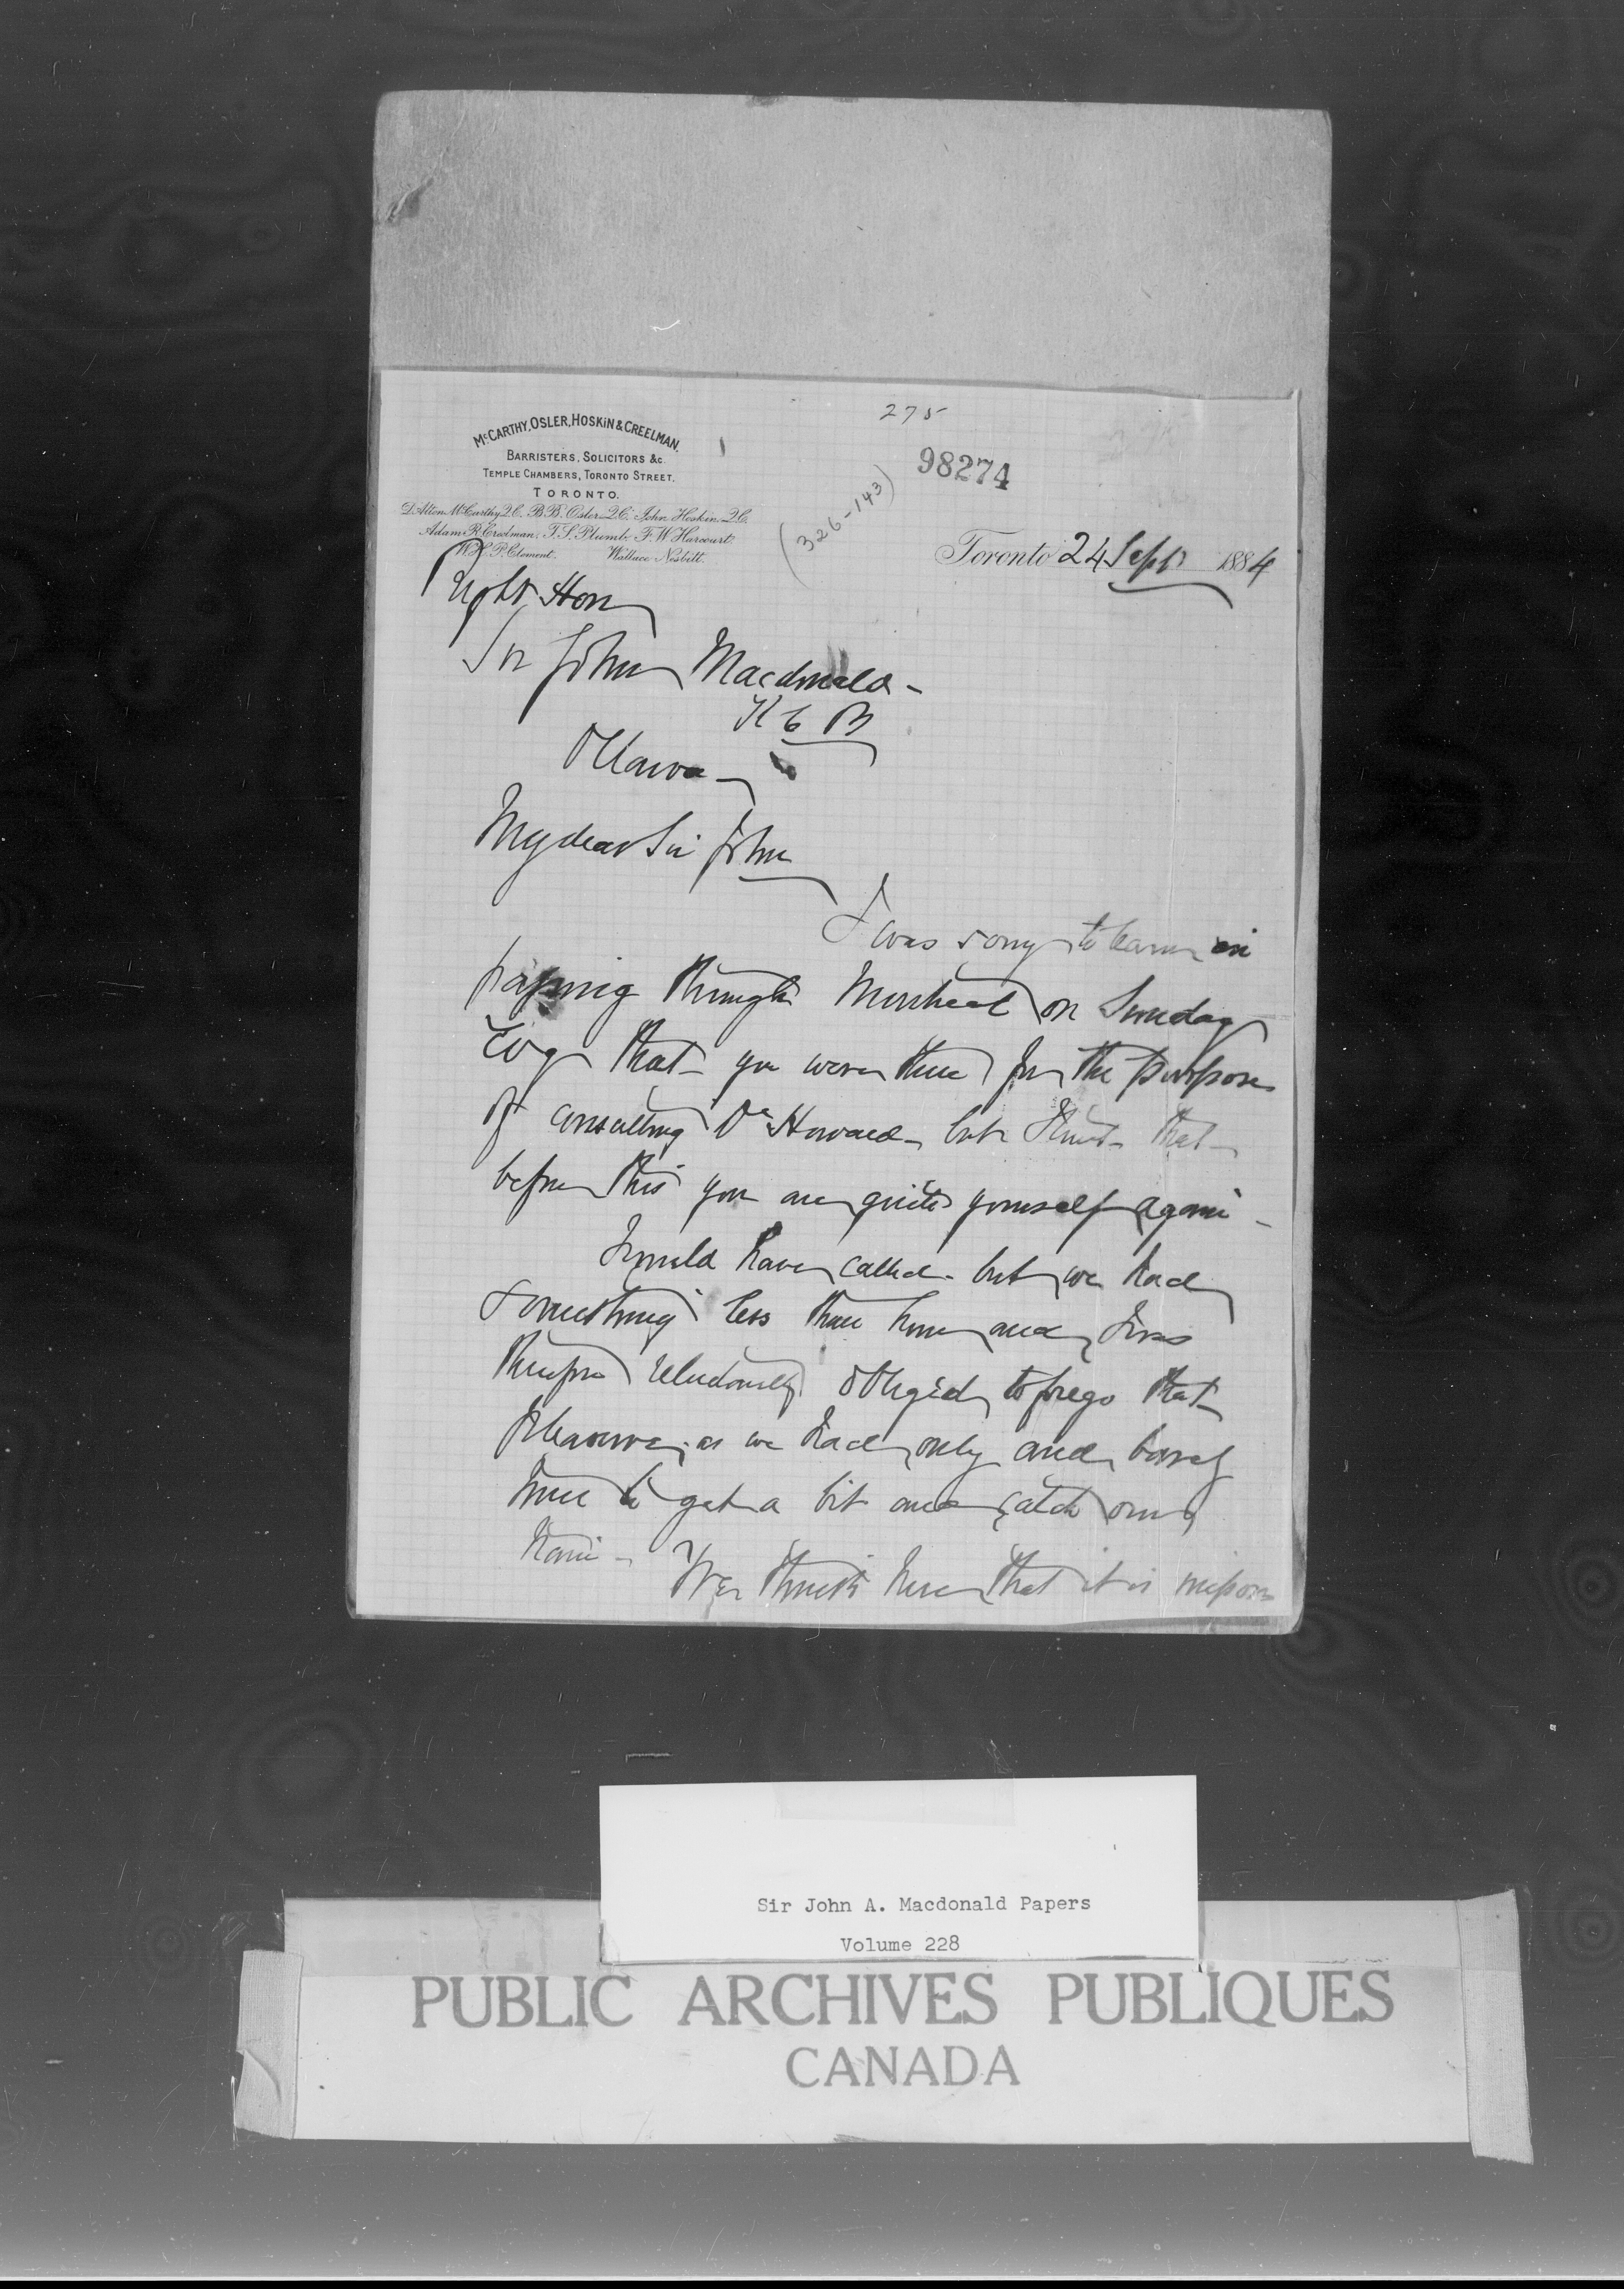 275
98274
(326-143)
McCARTHY, OSLER, HOSKIN & CREELMAN,
BARRISTERS, SOLICITORS &c.
TEMPLE CHAMBERS, TORONTO STREET,
TORONTO.
D'Alton McCarthy Q.C. B.B. Osler Q.C. John Hoskin Q.C.
Adam R. Creelman. T.S. Plumb. F.W. Harcourt.
W.H.P. Clement. Wallace Nesbitt.
Toronto 24 Sept 1884
Right Hon
Sir John Macdonald -
K C B
Ottawa -
My dear Sir John
I was sorry to learn in
passing through Montreal on Sunday
Evg that you were there for the purpose
of consulting Dr Howard - but trust that
before this you are quite yourself again -
I would have called - but we had
something less than hour and I was
therefore reluctantly obliged to forego that
pleasure, as we had only and barely
time to get a bit and catch our
train - We think here that it is
Sir John A. Macdonald Papers
Volume 228
PUBLIC ARCHIVES PUBLIQUES
CANADA